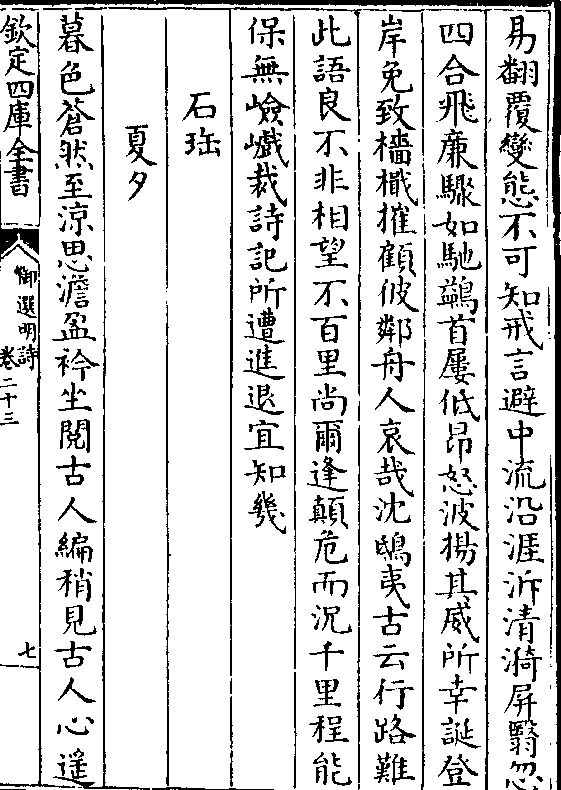 易翻覆變態不可知戒言避中流沿涯泝清漪屏翳忽
四合飛廉驟如馳鷁首屢低昂怒波揚其威所幸誕登
岸免致檣檝摧顧彼鄰舟人哀哉沈鴟夷古云行路難
此語良不非相望不百里尚爾逢顛危而況千里程能
保無嶮巇裁詩記所遭進退宜知幾
石珤
夏夕
暮色蒼然至涼思澹盈衿坐閱古人編稍見古人心遥
欽定四庫全書
御選明詩
卷二十三
七